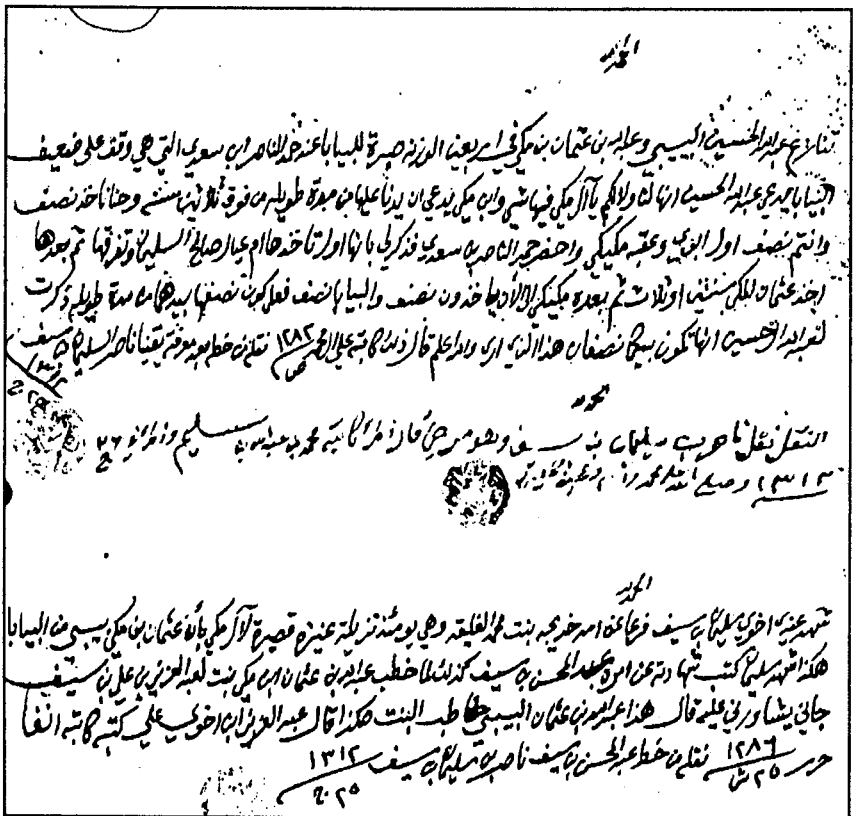 الحمد لله
تنازع عبدالله الحسين البيبي وعبدالله بن عثمان بن مكي في اربعين الوزنه صبرة للبيابا عند حمد الناصر ابن سعدي التي هي وقف على ضعيف
البيابا يدعي عبدالله الحسين انها لنا ولا لكم يا آل مكي فيها شي وابن مكي يدعي ان يدنا عليها من مدة طويله من فوق ثلاثين سنة وحنا ناخذ نصف
وانتم نصف اول وعقبه مكيكي واحضر حمد الناصر بن سعدي فذكر لي بانها اول تاخذها ام عيال صالح السليمان وتفرقها ثم بعدها
اخذ عثمان المكي سنتين او ثلاث ثم بعده مكيكي ياخذون نصف والبيابا نصف فعلى كون نصفها بيدهم من مدة طويله ذكرت
لعبدالله الحسين انها تكون بينكم نصفان هذا الذي ارى والله اعلم قال ذلك كاتبه علي المحمد ١٢٨٢ نقله من خطه بعد معرفته يقينا ناصر السليمان بن سيف
١٣١٢
٢٥ ج
الحمد لله
النقل نقل ناصر بن سليمان بن سيف وهو مرضي قال ذلك كاتبه محمد بن عبدالله بن سليم ٢٦ ج
١٣١٣ وصلى الله على محمد وآله وصحبه وسلم
الحمد لله
شهد عندي اخوي سليمان بن سيف فرعا عن امه خديجه بنت محمد الفليقه وهي يومئذ نزيلة عنيزه قصيرة لآل مكي بأن عثمان بن مكي بيبي من البيابا
هكذا شهد سليمان كتب شهادته عن امره عبدالمحسن بن سيف كذلك لما خطب عبدالله بن عثمان ابن مكي بنت لعبدالعزيز بن علي بن سيف
جاني يشاورني عليه قال هذا عبدالله بن عثمان البيبي خاطب البنت هكذا قال عبدالعزيز ابن اخوي علي كتبه كاتبه انفا
حرر ٢٥ ش ١٢٨٦ نقله من خط عبدالمحسن بن سيف ناصر بن سليمان بن سيف ١٣١٢
٢٥ ج